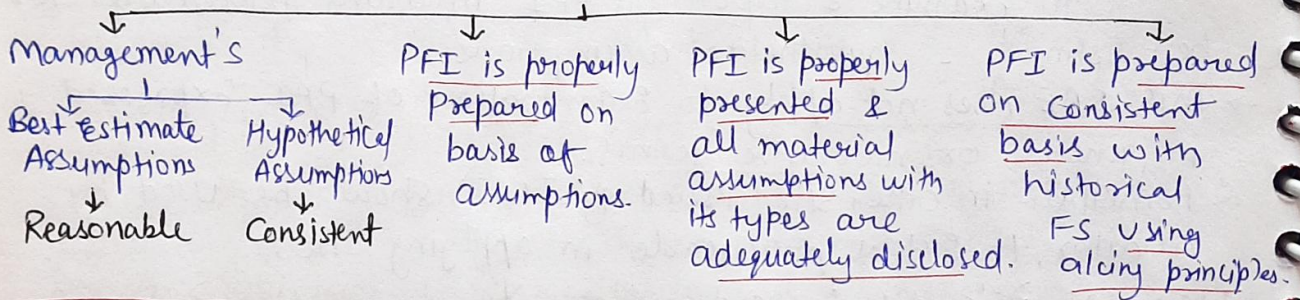 Management's
Best Estimate
Assumptions
Reasonable
Hypothetical
Assumptions
Consistent
PFI is properly
Prepared on
basis of
assumptions.
PFI is properly
presented &
all material
assumptions with
its types are
adequately disclosed.
PFI is prepared
on Consistent
basis with
historical
FS using
alcing principles.